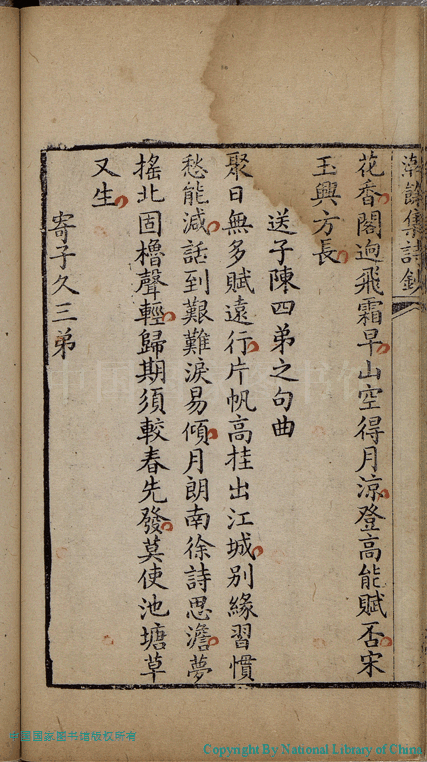 瀞餘集詩鈔
花香閣迥飛霜早山空得月涼登高能賦否宋
玉興方長
送子陳四弟之句曲
聚日無多賦遠行片帆高挂出江城别緣習慣
愁能減話到艱難淚易傾月朗南徐詩思澹夢
搖北固櫓聲輕歸期須較春先發莫使池塘草
又生
寄子久三弟
中国国家图书馆
中国国家图书馆版权所有
Copyright By National Library of China